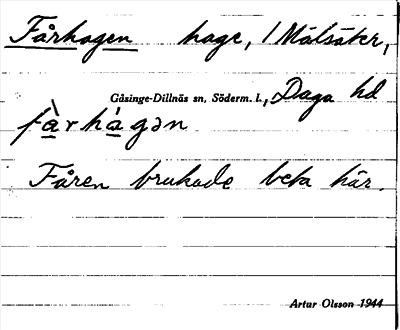 Fårhagen hage, / Målsåker,
Gåsinge-Dillnäs sn, Söderm. l., Daga hd
fàrhágən
Fåren brukade beta här.
Artur Olsson 1944